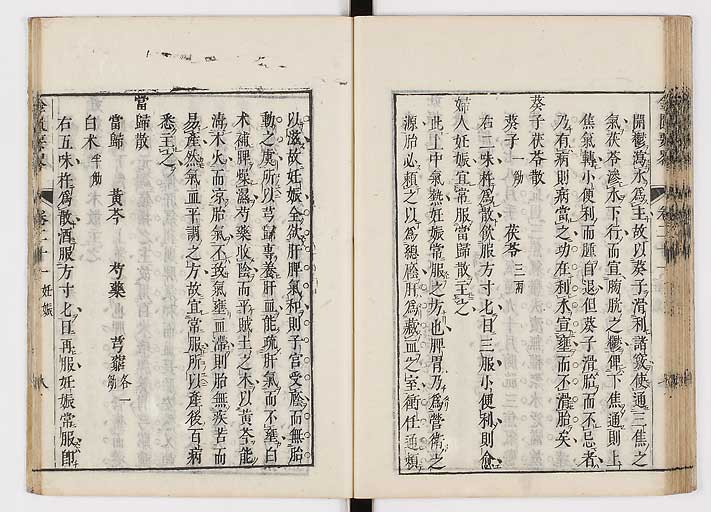 開鬱瀉水為主故以葵子滑利諸竅使通三焦之
氣茯苓滲水下行而宣膀胱之鬱俾下焦通則上
焦氣轉小便利而腫自退但葵子滑胎而不忌者
乃有病則病當之功在利水宣壅而不滑胎矣
葵子茯苓散
葵子一觔 茯苓三兩
右二味杵為散飲服方寸匕日三服小便利則愈
婦人妊娠宜常服當歸散主之
此丁中氣熱妊娠常服之方也脾胃乃為營衛之
源胎必賴之以為總廕肝為藏血之室衝任通賴
以滋故妊娠全欲肝脾氣和則子官受廕而無胎
動之虞所以芎歸專養肝血能疏肝氣而不壅白
朮補脾燥濕芍藥收陰而平賊土之木以黃芩能
瀉木火而凉胎氣不致氣壅血滯則胎無疾苦而
易產然氣血平調之方故宜常服所以產後百病
悉主之
當歸散
當歸 黃芩 芍藥 芎藭各一觔
白朮半觔
右五味杵為散酒服方寸匕日再服妊娠常服即
卷二十一 妊娠 八